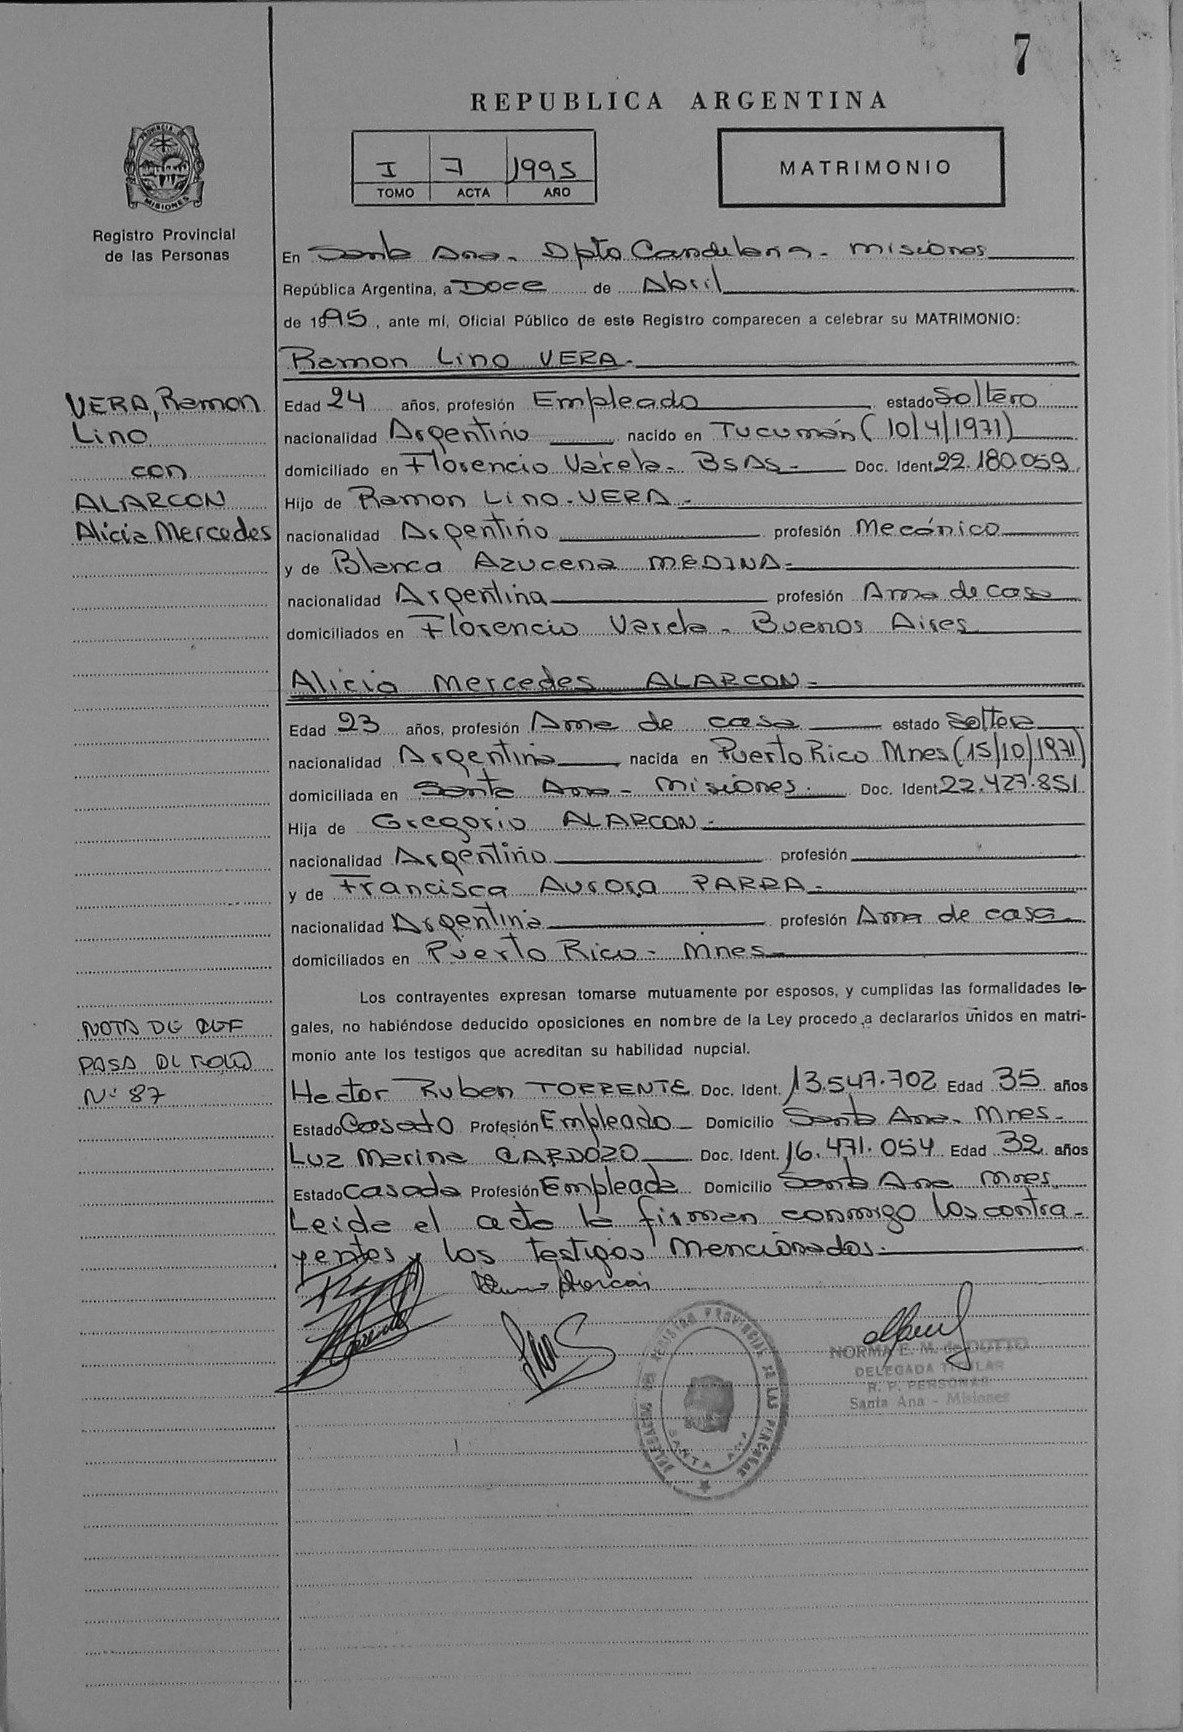 7
REPUBLICA ARGENTINA
I 7 1995
TOMO ACTA AÑO
MATRIMONIO
PROVINCIA DE MISIONES
Registro Provincial
de las Personas
En Santa Ana - Dpto Candelaria - Misiones
República Argentina, a DOCE de Abril
de 1995, ante mí, Oficial Público de este Registro comparecen a celebrar su MATRIMONIO:
Ramon Lino VERA-
VERA, Ramon
Lino
con
ALARCON
Alicia Mercedes
Edad 24 años, profesión Empleado estado Soltero
nacionalidad Argentino nacido en Tucumán (10/4/1971)
domiciliado en Florencio Varela - BsAs - Doc. Ident 22.180.059
Hijo de Ramon Lino - VERA -
nacionalidad Argentino profesión Mecánico
y de Blanca Azucena MEDINA -
nacionalidad Argentina profesión Ama de casa
domiciliados en Florencio Varela - Buenos Aires
Alicia Mercedes ALARCON -
Edad 23 años, profesión Ama de casa estado Soltera
nacionalidad Argentina nacida en Puerto Rico Mnes (15/10/1971)
domiciliada en Santa Ana - Misiones. Doc. Ident 22.427.851
Hija de Gregorio ALARCON -
nacionalidad Argentino profesión
y de Francisca Aurora PARRA -
nacionalidad Argentina profesión Ama de casa
domiciliados en Puerto Rico - Mnes
Los contrayentes expresan tomarse mutuamente por esposos, y cumplidas las formalidades le-
gales, no habiéndose deducido oposiciones en nombre de la Ley procedo a declararlos unidos en matri-
monio ante los testigos que acreditan su habilidad nupcial.
NOTA DE REF
PASA AL FOLIO
Nº 87
Hector Ruben TORRENTE Doc. Ident. 13.547.702 Edad 35 años
Estado Casado Profesión Empleado - Domicilio Santa Ana - Mnes -
Luz Marina CARDOZO Doc. Ident. 16.471.054 Edad 32 años
Estado Casada Profesión Empleada Domicilio Santa Ana Mnes
Leida el acta la firman conmigo los contra-
yentes y los testigos mencionados -
NORMA E. M. de DUTTO
DELEGADA TITULAR
R. P. PERSONAS
Santa Ana - Misiones
REGISTRO PROVINCIAL DE LAS PERSONAS
SANTA ANA